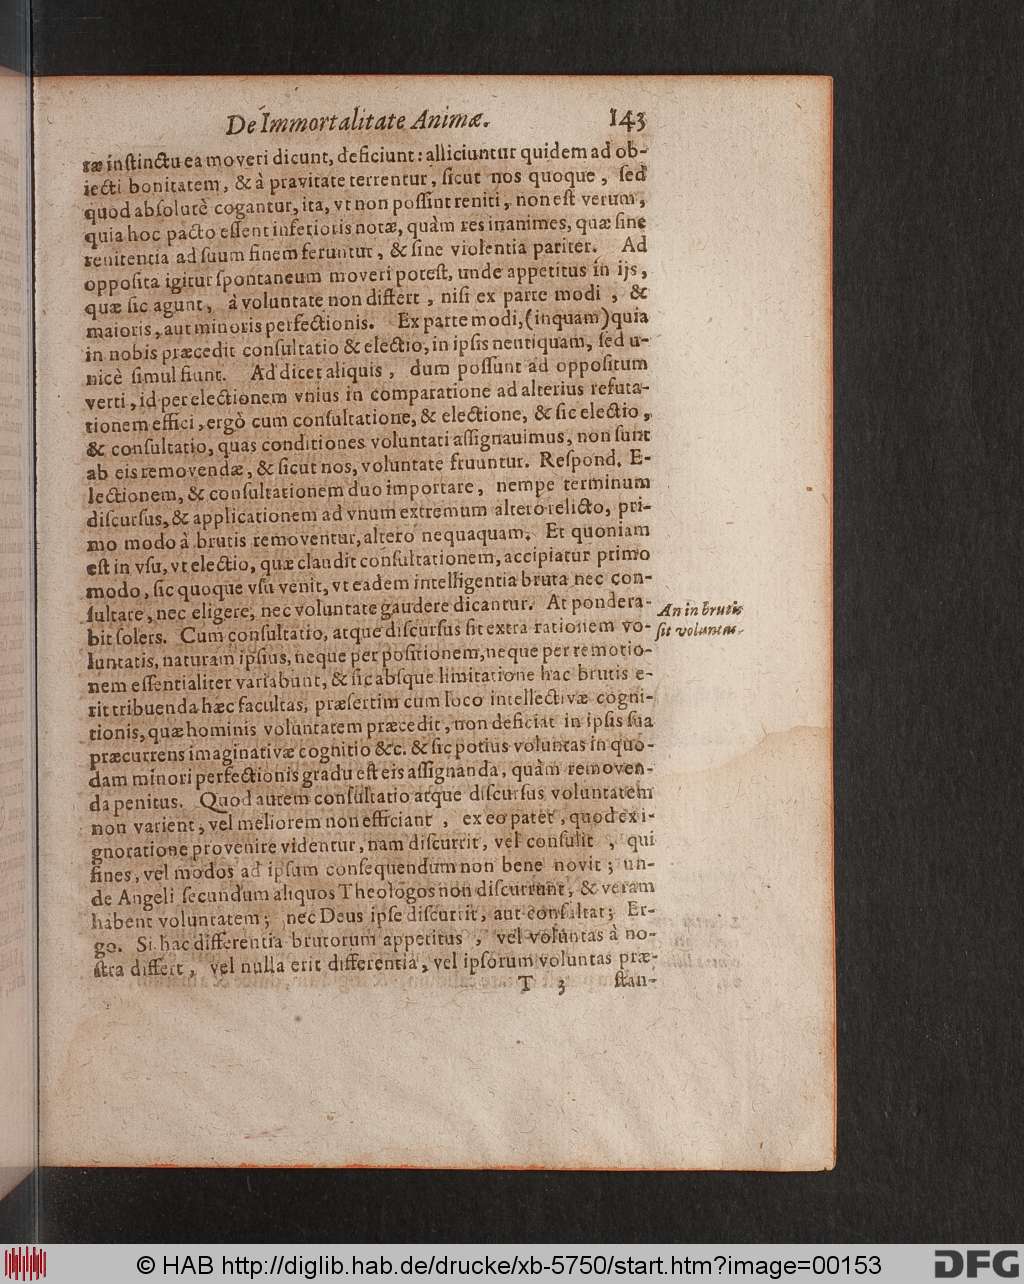 De Immortalitate Animæ. 143
ræ instinctu ea moveri dicunt, deficiunt: alliciuntur quidem ad ob-
iecti bonitatem, & à pravitate terrentur, sicut nos quoque, sed
quod absolutè cogantur, ita, vt non possint reniti, non est verum,
quia hoc pacto essent inferioris notæ, quàm res inanimes, quæ sine
renitentia ad suum finem feruntur, & sine violentia pariter. Ad
opposita igitur spontaneum moveri potest, unde appetitus in ijs,
quæ sic agunt, à voluntate non differt, nisi ex parte modi, &
maioris, aut minoris perfectionis. Ex parte modi, (inquam) quia
in nobis præcedit consultatio & electio, in ipsis neutiquam, sed u-
nicè simul fiunt. Ad dicet aliquis, dum possunt ad oppositum
verti, id per electionem vnius in comparatione ad alterius refuta-
tionem effici, ergò cum consultatione, & electione, & sic electio,
& consultatio, quas conditiones voluntati assignauimus, non sunt
ab eis removendæ, & sicut nos, voluntate fruuntur. Respond. E-
lectionem, & consultationem duo importare, nempe terminum
discursus, & applicationem ad vnum extremum altero relicto, pri-
mo modo à brutis removentur, altero nequaquam. Et quoniam
est in vsu, vt electio, quæ claudit consultationem, accipiatur primo
modo, sic quoque vsu venit, vt eadem intelligentia bruta nec con-
sultare, nec eligere, nec voluntate gaudere dicantur. At pondera-
bit solers. Cum consultatio, atque discursus sit extra rationem vo-
luntatis, naturam ipsius, neque per positionem, neque per remotio-
nem essentialiter variabunt, & sic absque limitatione hac brutis e-
rit tribuenda hæc facultas, præsertim cum loco intellectivæ cogni-
tionis, quæ hominis voluntatem præcedit, non deficiat in ipsis sua
præcurrens imaginativæ cognitio &c. & sic potius voluntas in quo-
dam minori perfectionis gradu est eis assignanda, quàm removen-
da penitus. Quod autem consultatio atque discursus voluntatem
non varient, vel meliorem non efficiant, ex eo patet, quod ex i-
gnoratione provenire videntur, nam discurrit, vel consulit, qui
fines, vel modos ad ipsum consequendum non bene novit; un-
de Angeli secundum aliquos Theologos non discurrunt, & veram
habent voluntatem; nec Deus ipse discurrit, aut consultat; Er-
go. Si hac differentia brutorum appetitus, vel voluntas à no-
stra differt, vel nulla erit differentia, vel ipsorum voluntas præ-
T 3 stan-
An in brutis
sit voluntas.
© HAB http://diglib.hab.de/drucke/xb-5750/start.htm?image=00153
DFG